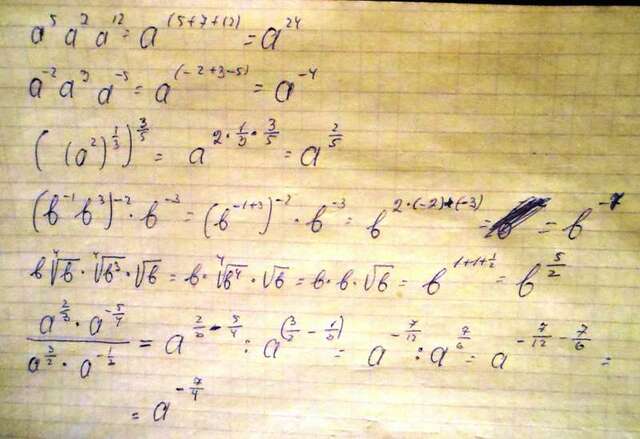 a⁵ a⁷ a¹² = a^(5+7+12) = a²⁴
a⁻² a³ a⁻⁵ = a^(-2+3-5) = a⁻⁴
((a²)^(1/3))^(3/5) = a^(2·1/3·3/5) = a^(2/5)
(b⁻¹ b³)⁻² · b⁻³ = (b⁻¹⁺³)⁻² · b⁻³ = b^(2·(-2)+(-3)) = = b⁻⁷
b ⁴√b · ⁴√b³ · √b = b · ⁴√b⁴ · √b = b · b · √b = b^(1+1+1/2) = b^(5/2)
(a^(2/3) · a^(-5/4)) / (a^(3/2) · a^(-1/3)) = a^(2/3 - 5/4) : a^(3/2 - 1/3) = a^(-7/12) : a^(7/6) = a^(-7/12 - 7/6) =
= a^(-7/4)